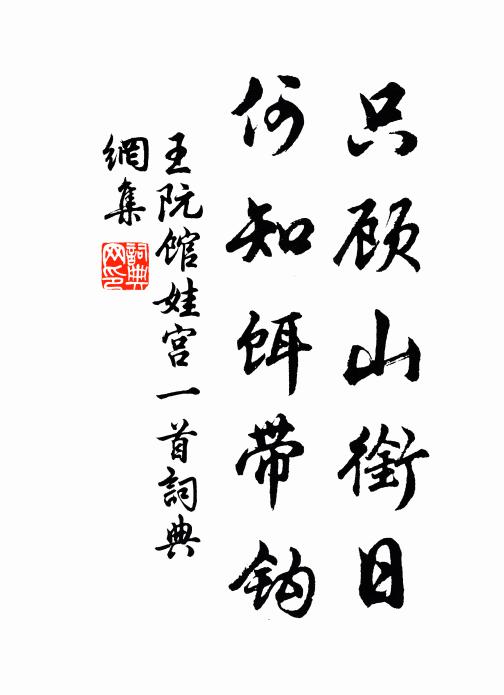 只顾山銜日
何知饵带钩
王阮馆娃宫一首詞典
網集
詞典
网印